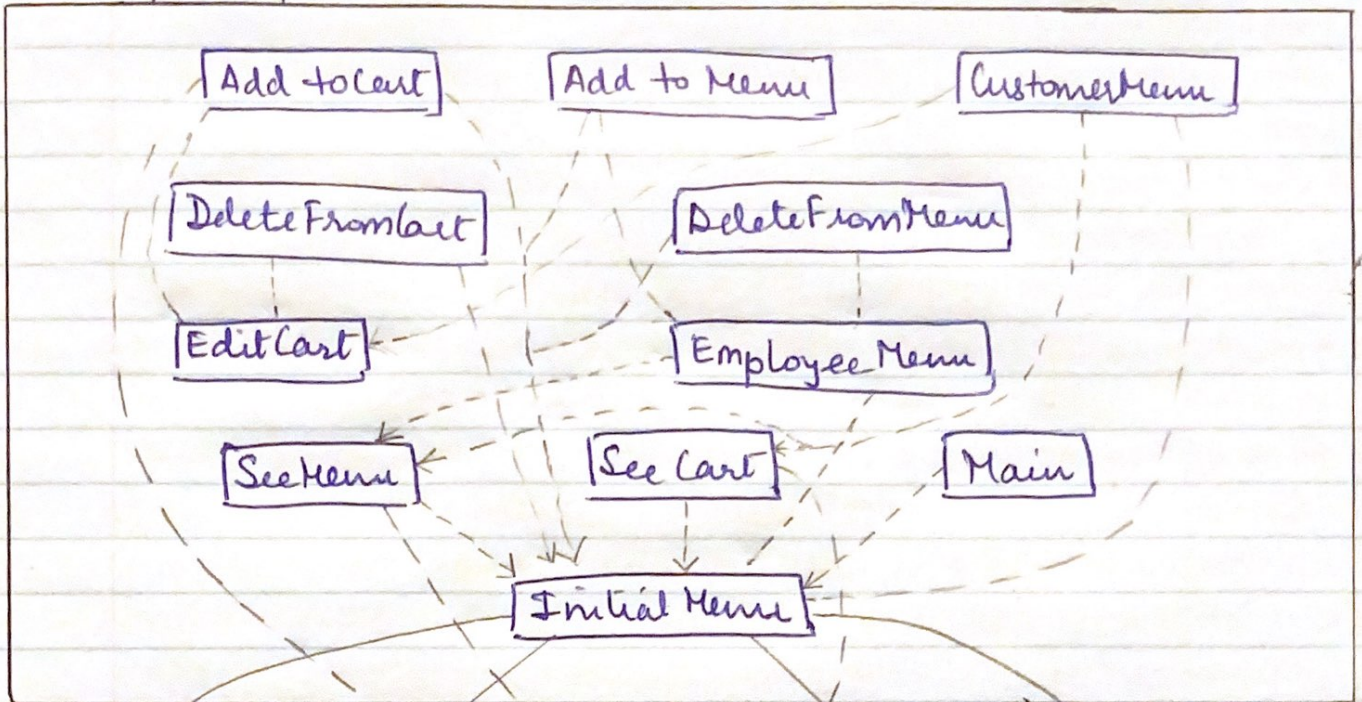 Add toCart
Add to Menu
CustomerMenu
DeleteFromCart
DeleteFromMenu
EditCart
Employee Menu
SeeMenu
See Cart
Main
Initial Menu